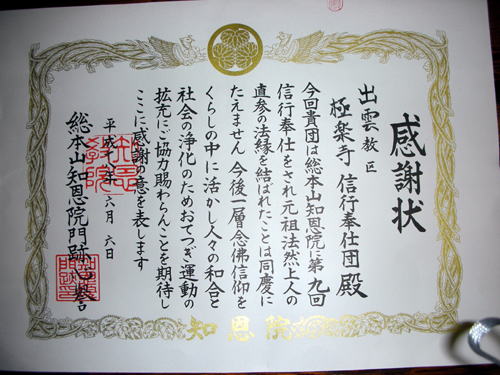 感謝状
出雲教区
極楽寺 信行奉仕団 殿
今回貴団は総本山知恩院に第九回
信行奉仕をされ元祖法然上人の
直参の法縁を結ばれたことは同慶に
たえません 今後一層念佛信仰を
くらしの中に活かし人々の和合と
社会の浄化のためおてつぎ運動
拡充にご協力賜わらんことを期待し
ここに感謝の意を表します
平成十八年六月六日
総本山知恩院門跡
知恩院